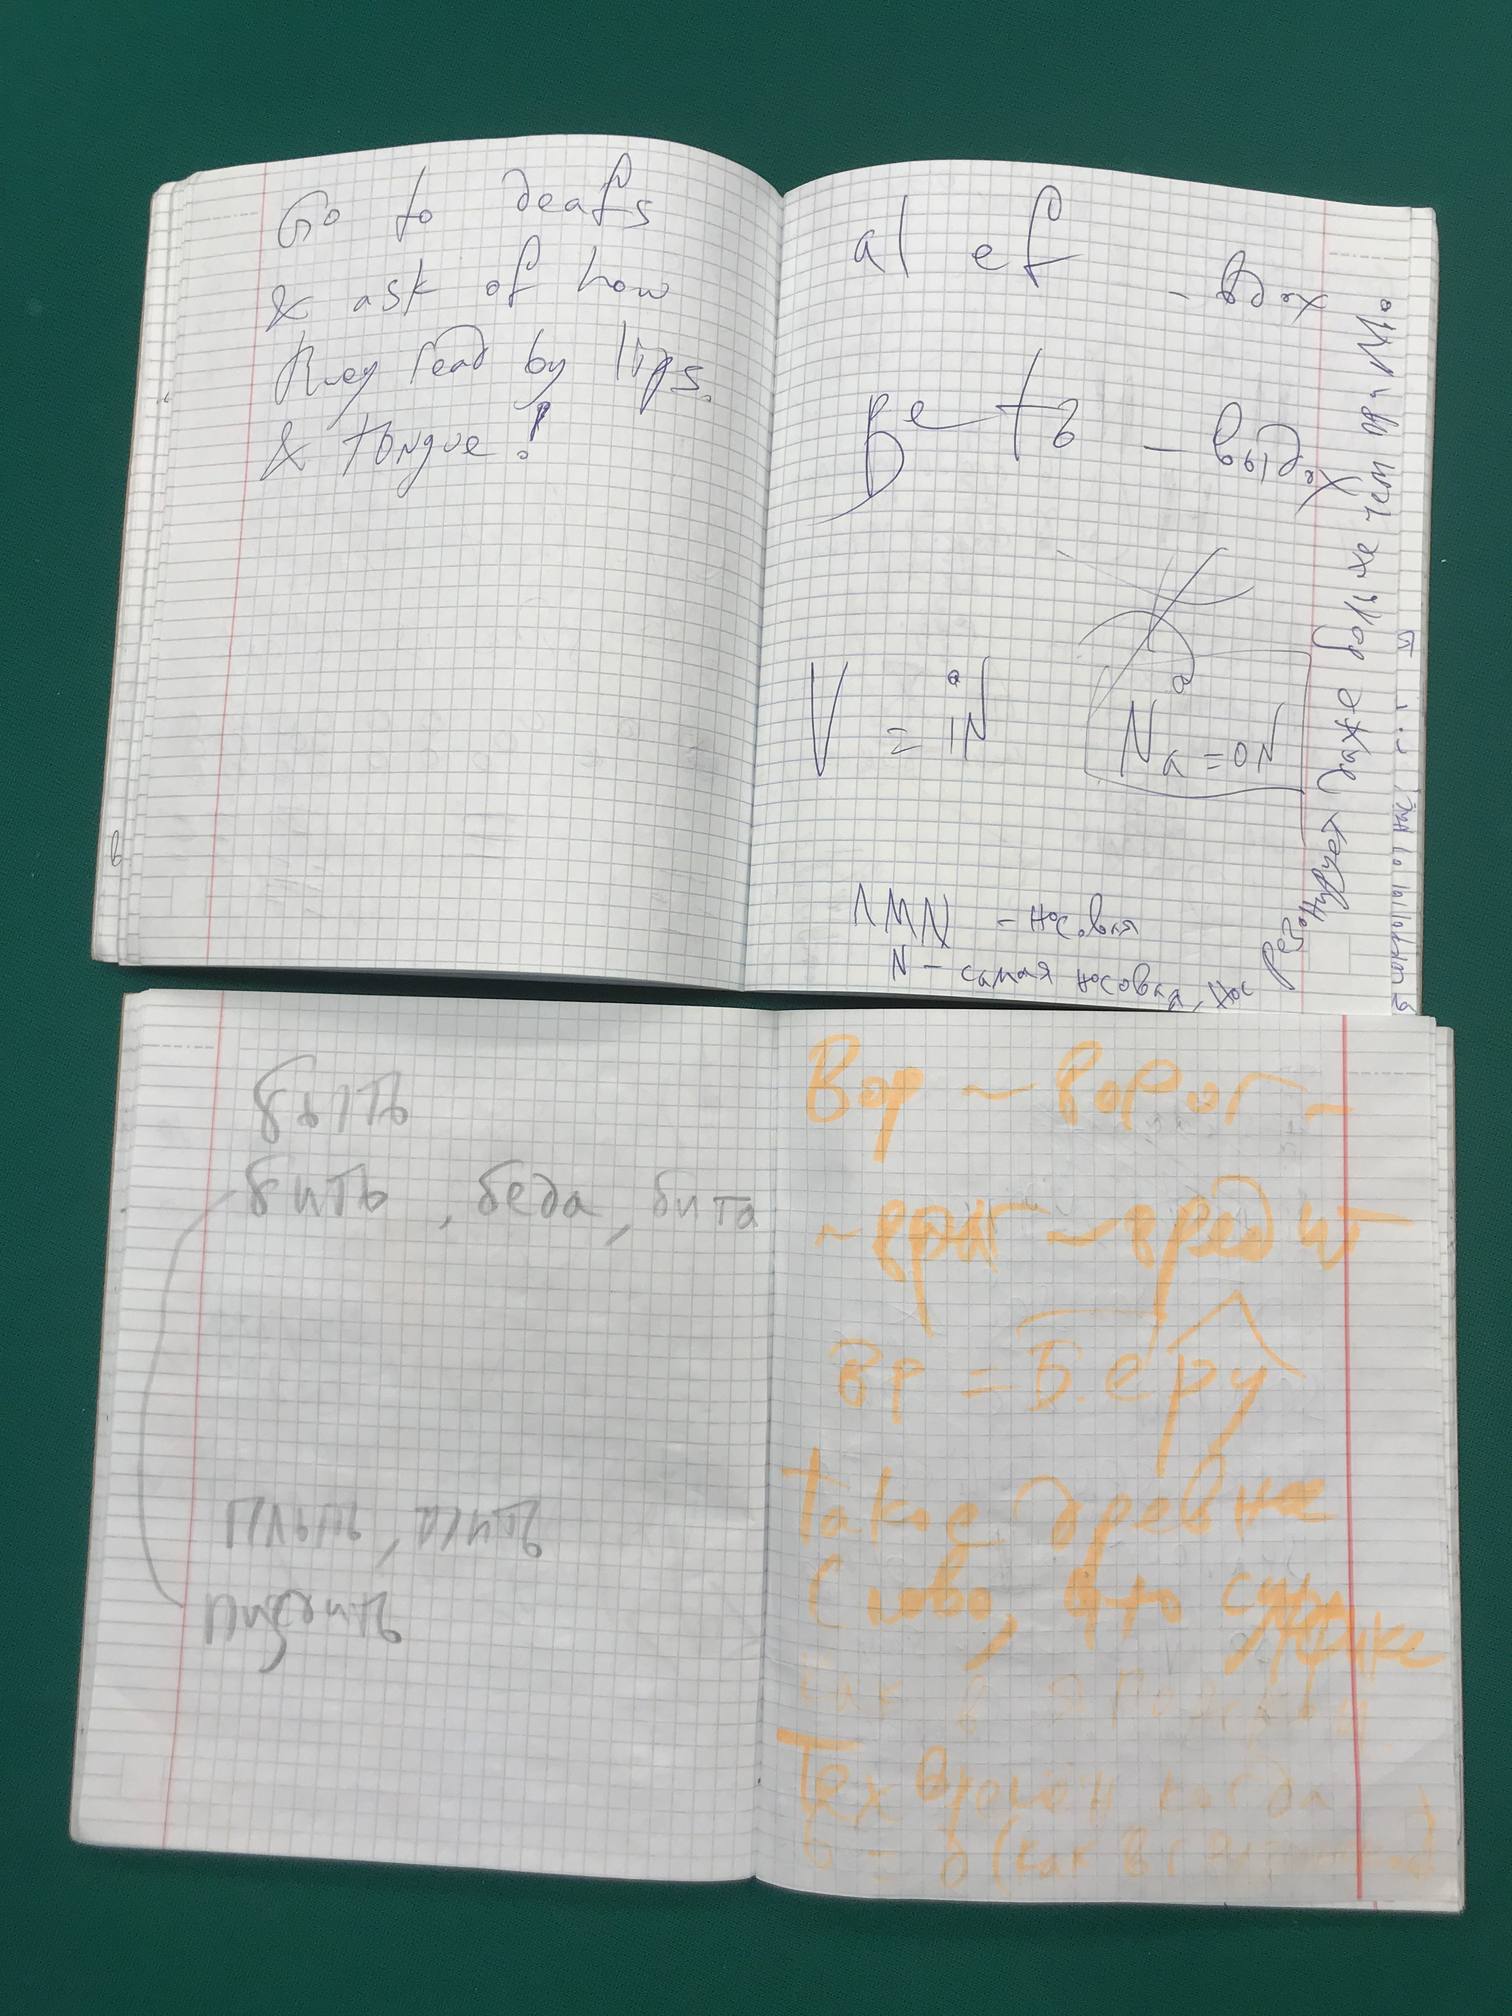 Go to deafs
& ask of how
they read by lips.
& tongue!
al ef
- вдох
ветъ - выдох
V = iN
Na = ON
ЛMN - носовая
N - самая носовая, нос
Резонирует даже больше чем при М
быть
бить, беда, бита
пить
пиздить
Вор ~ ворог ~
~ враг ~ вредит
Вр = Беру
такое древнее
слово, что
как в
Тех времён когда
б = в (как в